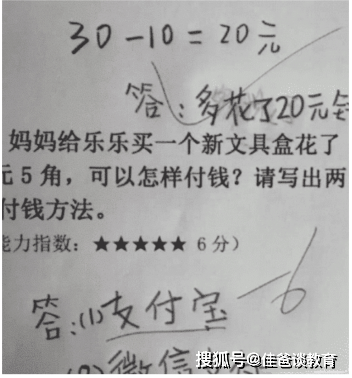 30-10=20元
答:多花了20元钱
妈妈给乐乐买一个新文具盒花了
元5角，可以怎样付钱？请写出两
付钱方法。
能力指数：★★★★★ 6分）
答:(1)支付宝 -6
(2)微信支付
搜狐号@佳爸谈教育